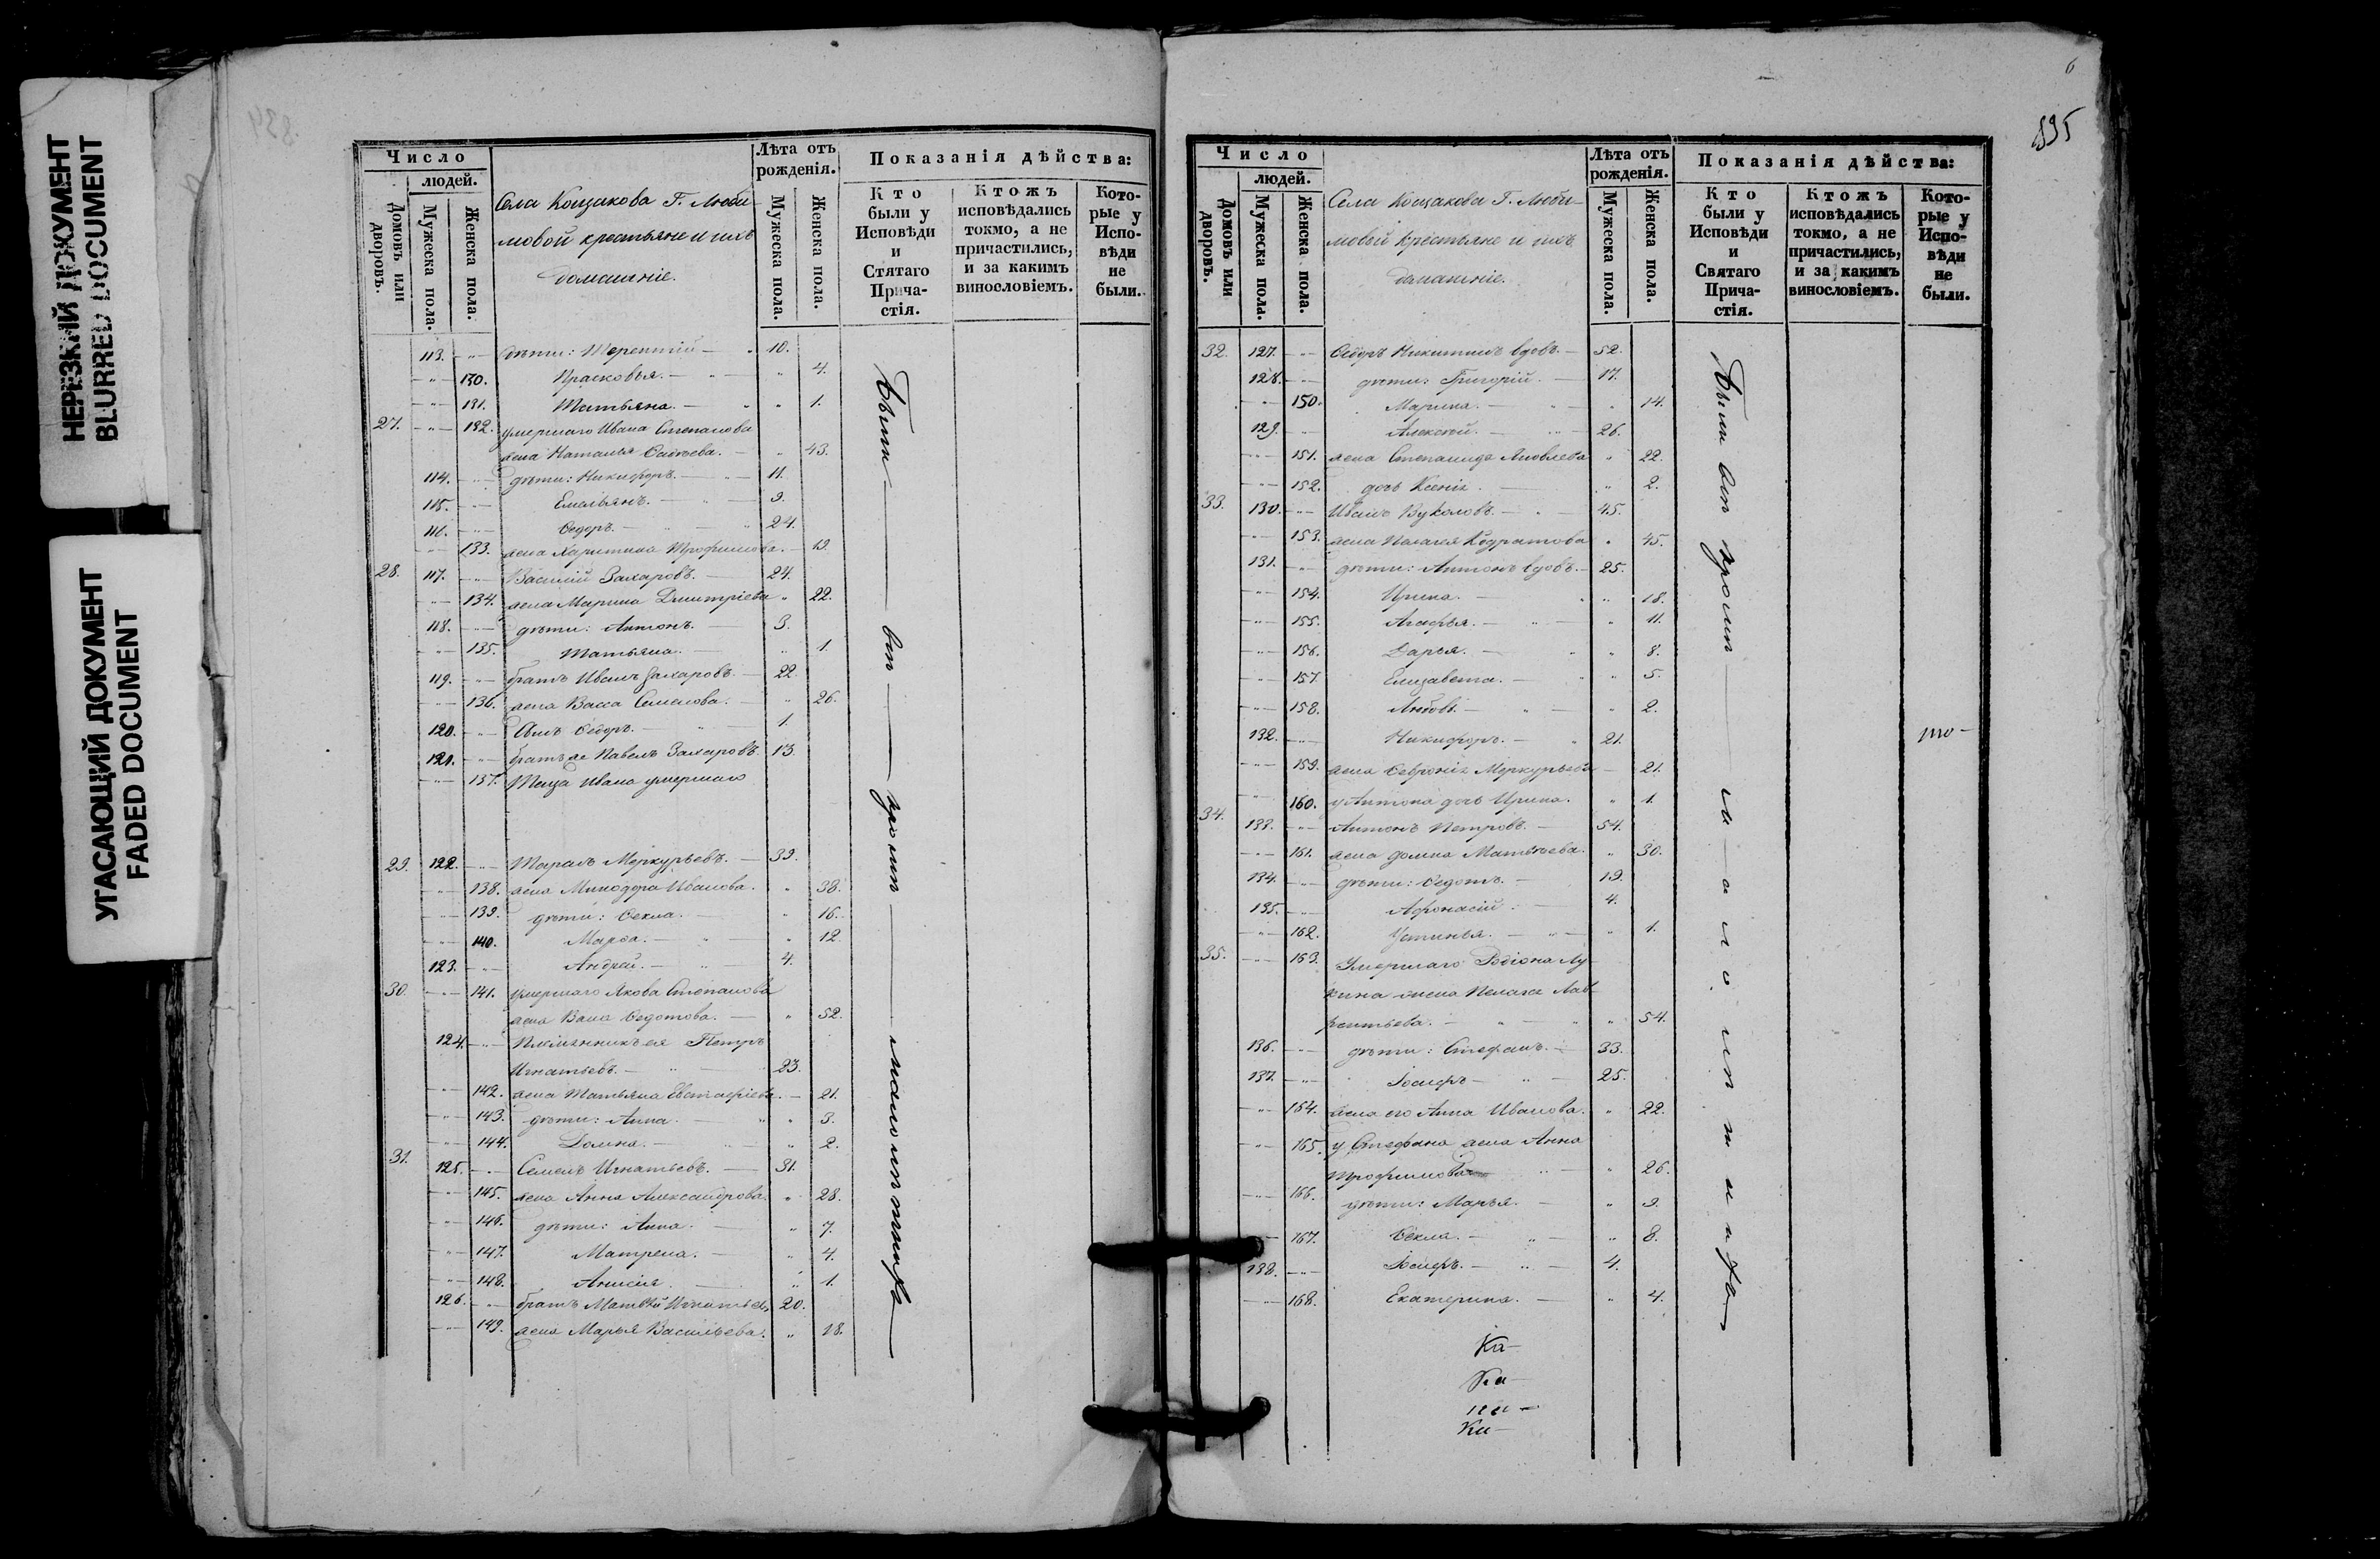 НЕРЕЗКИЙ ДОКУМЕНТ
BLURRED DOCUMENT
УГАСАЮЩИЙ ДОКУМЕНТ
FADED DOCUMENT
Число
людей.
Домовъ или дворовъ.
Мужеска пола.
Женска пола.
Села Кощакова Г. Люби-
мовой крестьяне и ихъ
домашніе.
Лѣта отъ рожденія.
Мужеска пола.
Женска пола.
Показанія дѣйства:
Кто были у Исповѣди и Стятаго Прича-стія.
Ктожъ исповѣдались токмо, а не причастились, и за какимъ винословіемъ.
Кото-рые у Испо-вѣди не были.
113. дѣти: Терентій 10.
130. Прасковья. 4.
131. Татьяна. 1.
27. 132. умершаго Ивана Степанова
жена Наталья 43.
114. дѣти: Никифоръ. 11.
115. Емельянъ. 9.
116. Ѳедоръ. 24.
133. жена Харитина Трофимова. 19.
28. 117. Василій Захаровъ. 24.
134. жена Марина Дмитріева 22.
118. дѣти: Антонъ. 3.
135. Татьяна. 1.
119. братъ Иванъ Захаровъ. 22.
136. жена Васса Семенова. 26.
120. Сынъ Ѳедоръ. 1.
121. братъ же Павелъ Захаровъ. 13.
137. Теща Ивана умершаго
29. 122. Тарасъ Меркурьевъ. 39.
138. жена Минодора Иванова. 38.
139. дѣти: Ѳекла. 16.
140. Марѳа. 12.
123. Андрей. 4.
30. 141. умершаго Якова Степанова
жена Ѳедотова. 52.
124. Племянникъ ея Петръ
Игнатьевъ. 23.
142. жена Татьяна Евстафіева. 21.
143. дѣти: Анна. 3.
144. Домна. 2.
31. 125. Семенъ Игнатьевъ. 31.
145. жена Анна Александрова. 28.
146. дѣти: Анна. 7.
147. Матрена. 4.
148. Анисія. 1.
126. братъ Матвѣй Игнатьев, 20.
149. жена Марья Васильева. 18.
Были
6
895
Число
людей.
Домовъ или дворовъ.
Мужеска пола.
Женска пола.
Села Кощакова Г. Люби-
мовой крестьяне и ихъ
домашніе.
Лѣта отъ рожденія.
Мужеска пола.
Женска пола.
Показанія дѣйства:
Кто были у Исповѣди и Святаго Прича-стія.
Ктожъ исповѣдались токмо, а не причастились, и за какимъ винословіемъ.
Кото-рые у Испо-вѣди не были.
32. 127. Ѳедоръ Никитинъ вдовъ. 52.
128. дѣти: Григорій. 17.
150. Марина. 14.
129. Алексѣй. 26.
151. жена Степанида Яковлева 22.
152. дочь Ксенія 2.
33. 130. Иванъ Вуколовъ. 45.
153. жена Пелагея Кодратова 45.
131. дѣти: Антонъ вдовъ. 25.
154. Ирина. 18.
155. Агафья. 11.
156. Дарья. 8.
157. Елизавета. 5.
158. Любовь. 2.
132. Никифоръ. 21.
159. жена Ѳевронія Меркурьева 21.
160. у Антона дочь Ирина. 1.
34. 133. Антонъ Петровъ. 54.
161. жена Домна Матвѣева. 30.
134. дѣти: Ѳедотъ. 19.
135. Афонасій. 4.
162. Устинья. 1.
35. 163. Умершаго Родіона Лу-
кина жена Пелагея Лав-
рентьева. 54.
136. дѣти: Стефанъ. 33.
137. Іосифъ 25.
164. жена его Анна Иванова. 22.
165. у Стефана жена Анна
Трофимова 26.
166. дѣти: Марья. 9.
167. Ѳекла. 8.
138. Іосифъ. 4.
168. Екатерина. 4.
Были
Ка
Ка